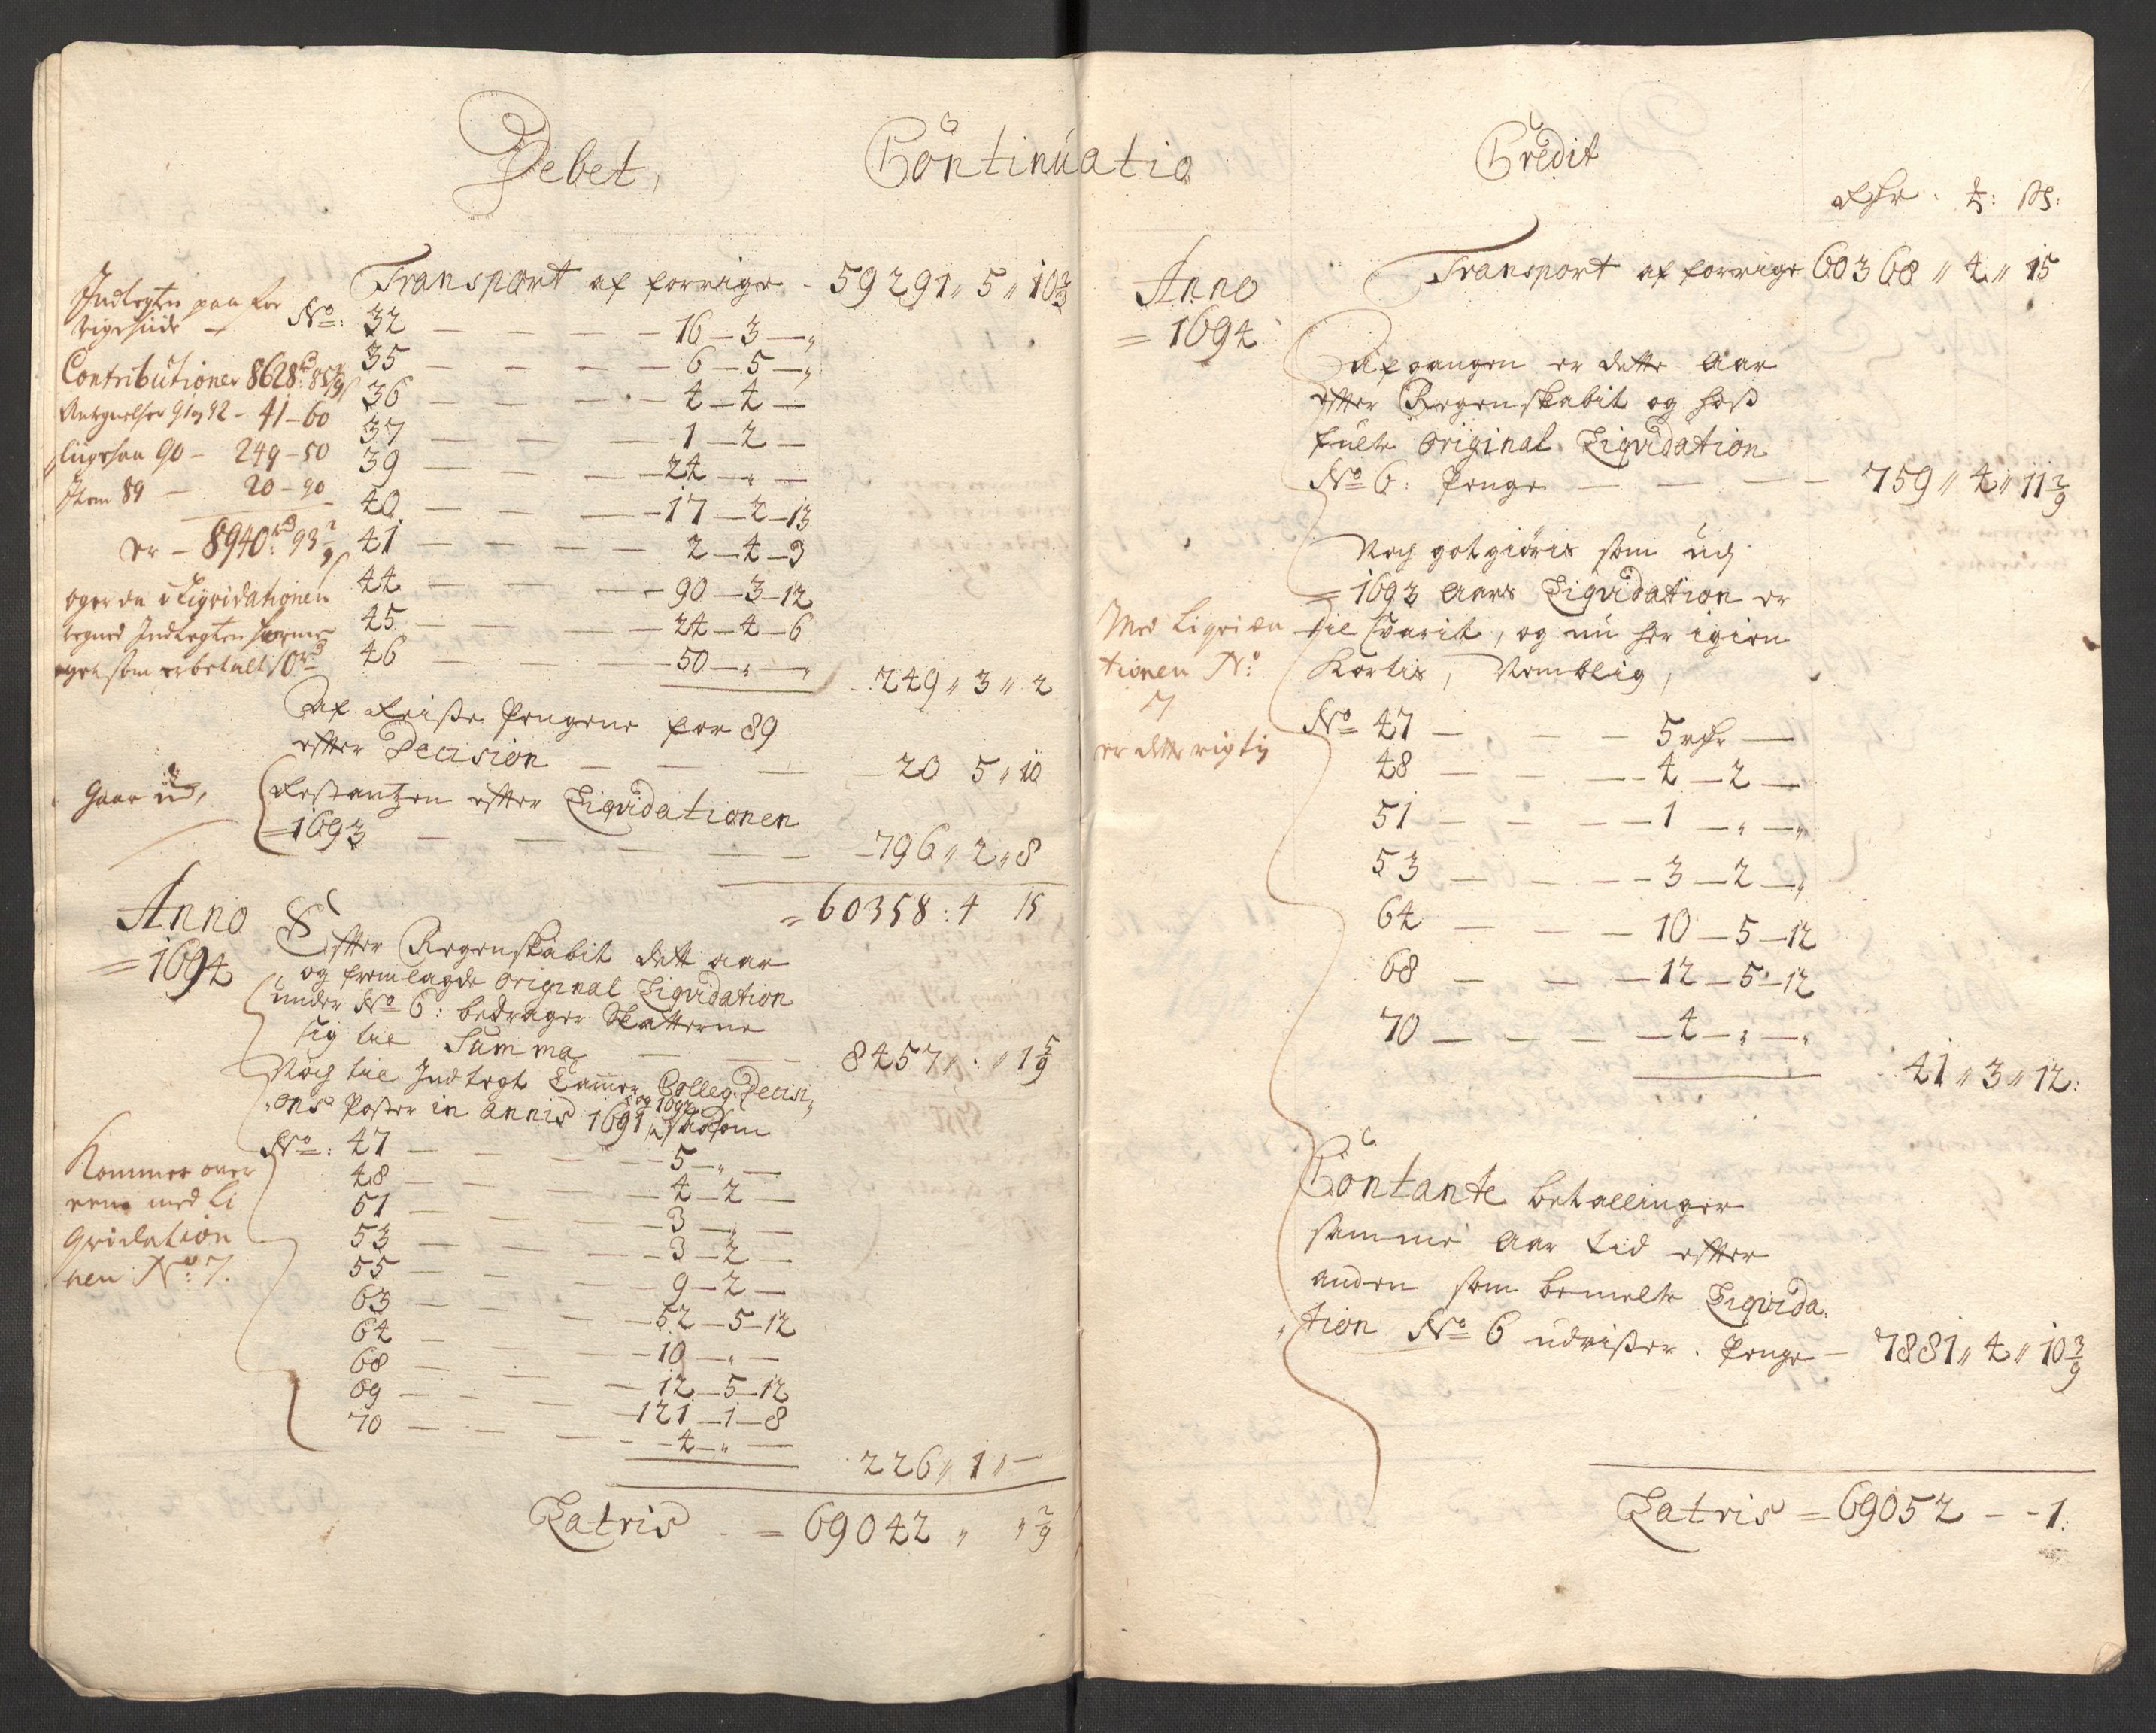 Debet,
Continuatio
Transport af forrige - 59291 " 5 " 10 2/3
Indtegten paa for
rigesiide -
Contributioner 8628 rd: 85 7/9
Antegnelser 91 og 92 - 41 - 60
ligesaa 90 - 249 - 50
Item 89 - 20 - 90
er - 8940 rd: 93 2/9
oger da i Liqvidationen
No: 32 — — — — 16 — 3 — "
35 — — — — 6 — 5 — "
36 — — — — 4 — 4 —
37 — — — — 1 — 2 —
39 — — — — 24 — " —
40 — — — — 17 — 2 — 13
41 — — — — 2 — 4 — 3
44 — — — — 90 — 3 — 12
45 — — — — 24 — 4 — 6
46 — — — — 50 — " — "
249 " 3 " 2
som er betalt 10 rd
Af Pengene for 89
efter Decision — — — 20 5 " 10
Gaar ud,
Restantzen efter Liqvidationen
= 1693 — — — — — 796 " 2 " 8
= 60358 : 4 15
Anno
= 1694
Efter Regenskabit dett aar
og fremlagde original Liqvidation
under No 6: bedrager Skatterne
sig til Summa — — 8457 " : " 1 5/9
Noch til Indtegt Cammer Colleg: Decisi,,
,,ons Poster in annis 1691 og 1692, Saasom
No: 47 — — — — 5 — " —
48 — — — — 4 — 2 —
51 — — — — 3 — " —
53 — — — — 3 — 2 —
55 — — — — 9 — 2 —
63 — — — — 52 — 5 — 12
64 — — — — 10 — " —
68 — — — — 12 — 5 — 12
69 — — — — 121 — 1 — 8
70 — — — — 4 — " —
226 " 1 " —
Kommer over
eens med Li
qvidation
nen No: 7.
Latris - = 69042 " " 2/9
Credit
Rdr. ₰: s:
Anno
= 1694
Transport af forrige 60368 " 4 " 15
Afgangen er dette Aar
efter Regenskabit og hoß
fulte original Liqvidation
No 6: Penge — — — — 759 " 4 " 11 2/9
Noch gotgiøris som udj
= 1693 Aars Liqvidation er
til Svarit, og nu her igien
Kortis, Nemblig,
Med Liqvida
tionen No:
7
er dette rigtig
No 47 — — — 5 rdr —
48 — — — 4 — 2 —
51 — — — 1 — " — "
53 — — — 3 — 2 — "
64 — — — 10 — 5 — 12
68 — — — 12 — 5 — 12
70 — — — 4 — " — "
41 " 3 " 12:
Contante betallinger
samme Aar tid efter
anden som bemelte Liqvida,
,,tion No 6 udvißer. Penge — 7881 " 4 " 10 3/9
Latris = 69052 - - 1: